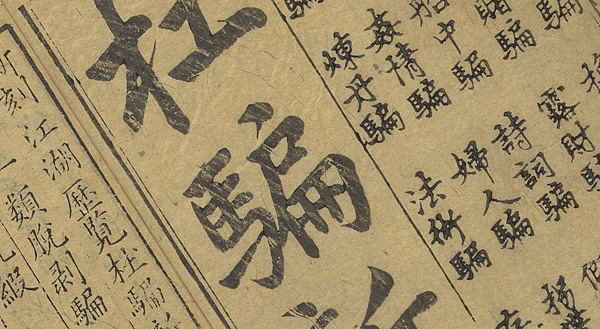 賭騙
船中騙
姦情騙
煉丹騙
露財騙
詩詞騙
婦人騙
法術騙
杜騙新
刻江湖歷覽杜騙新
類脫剝騙